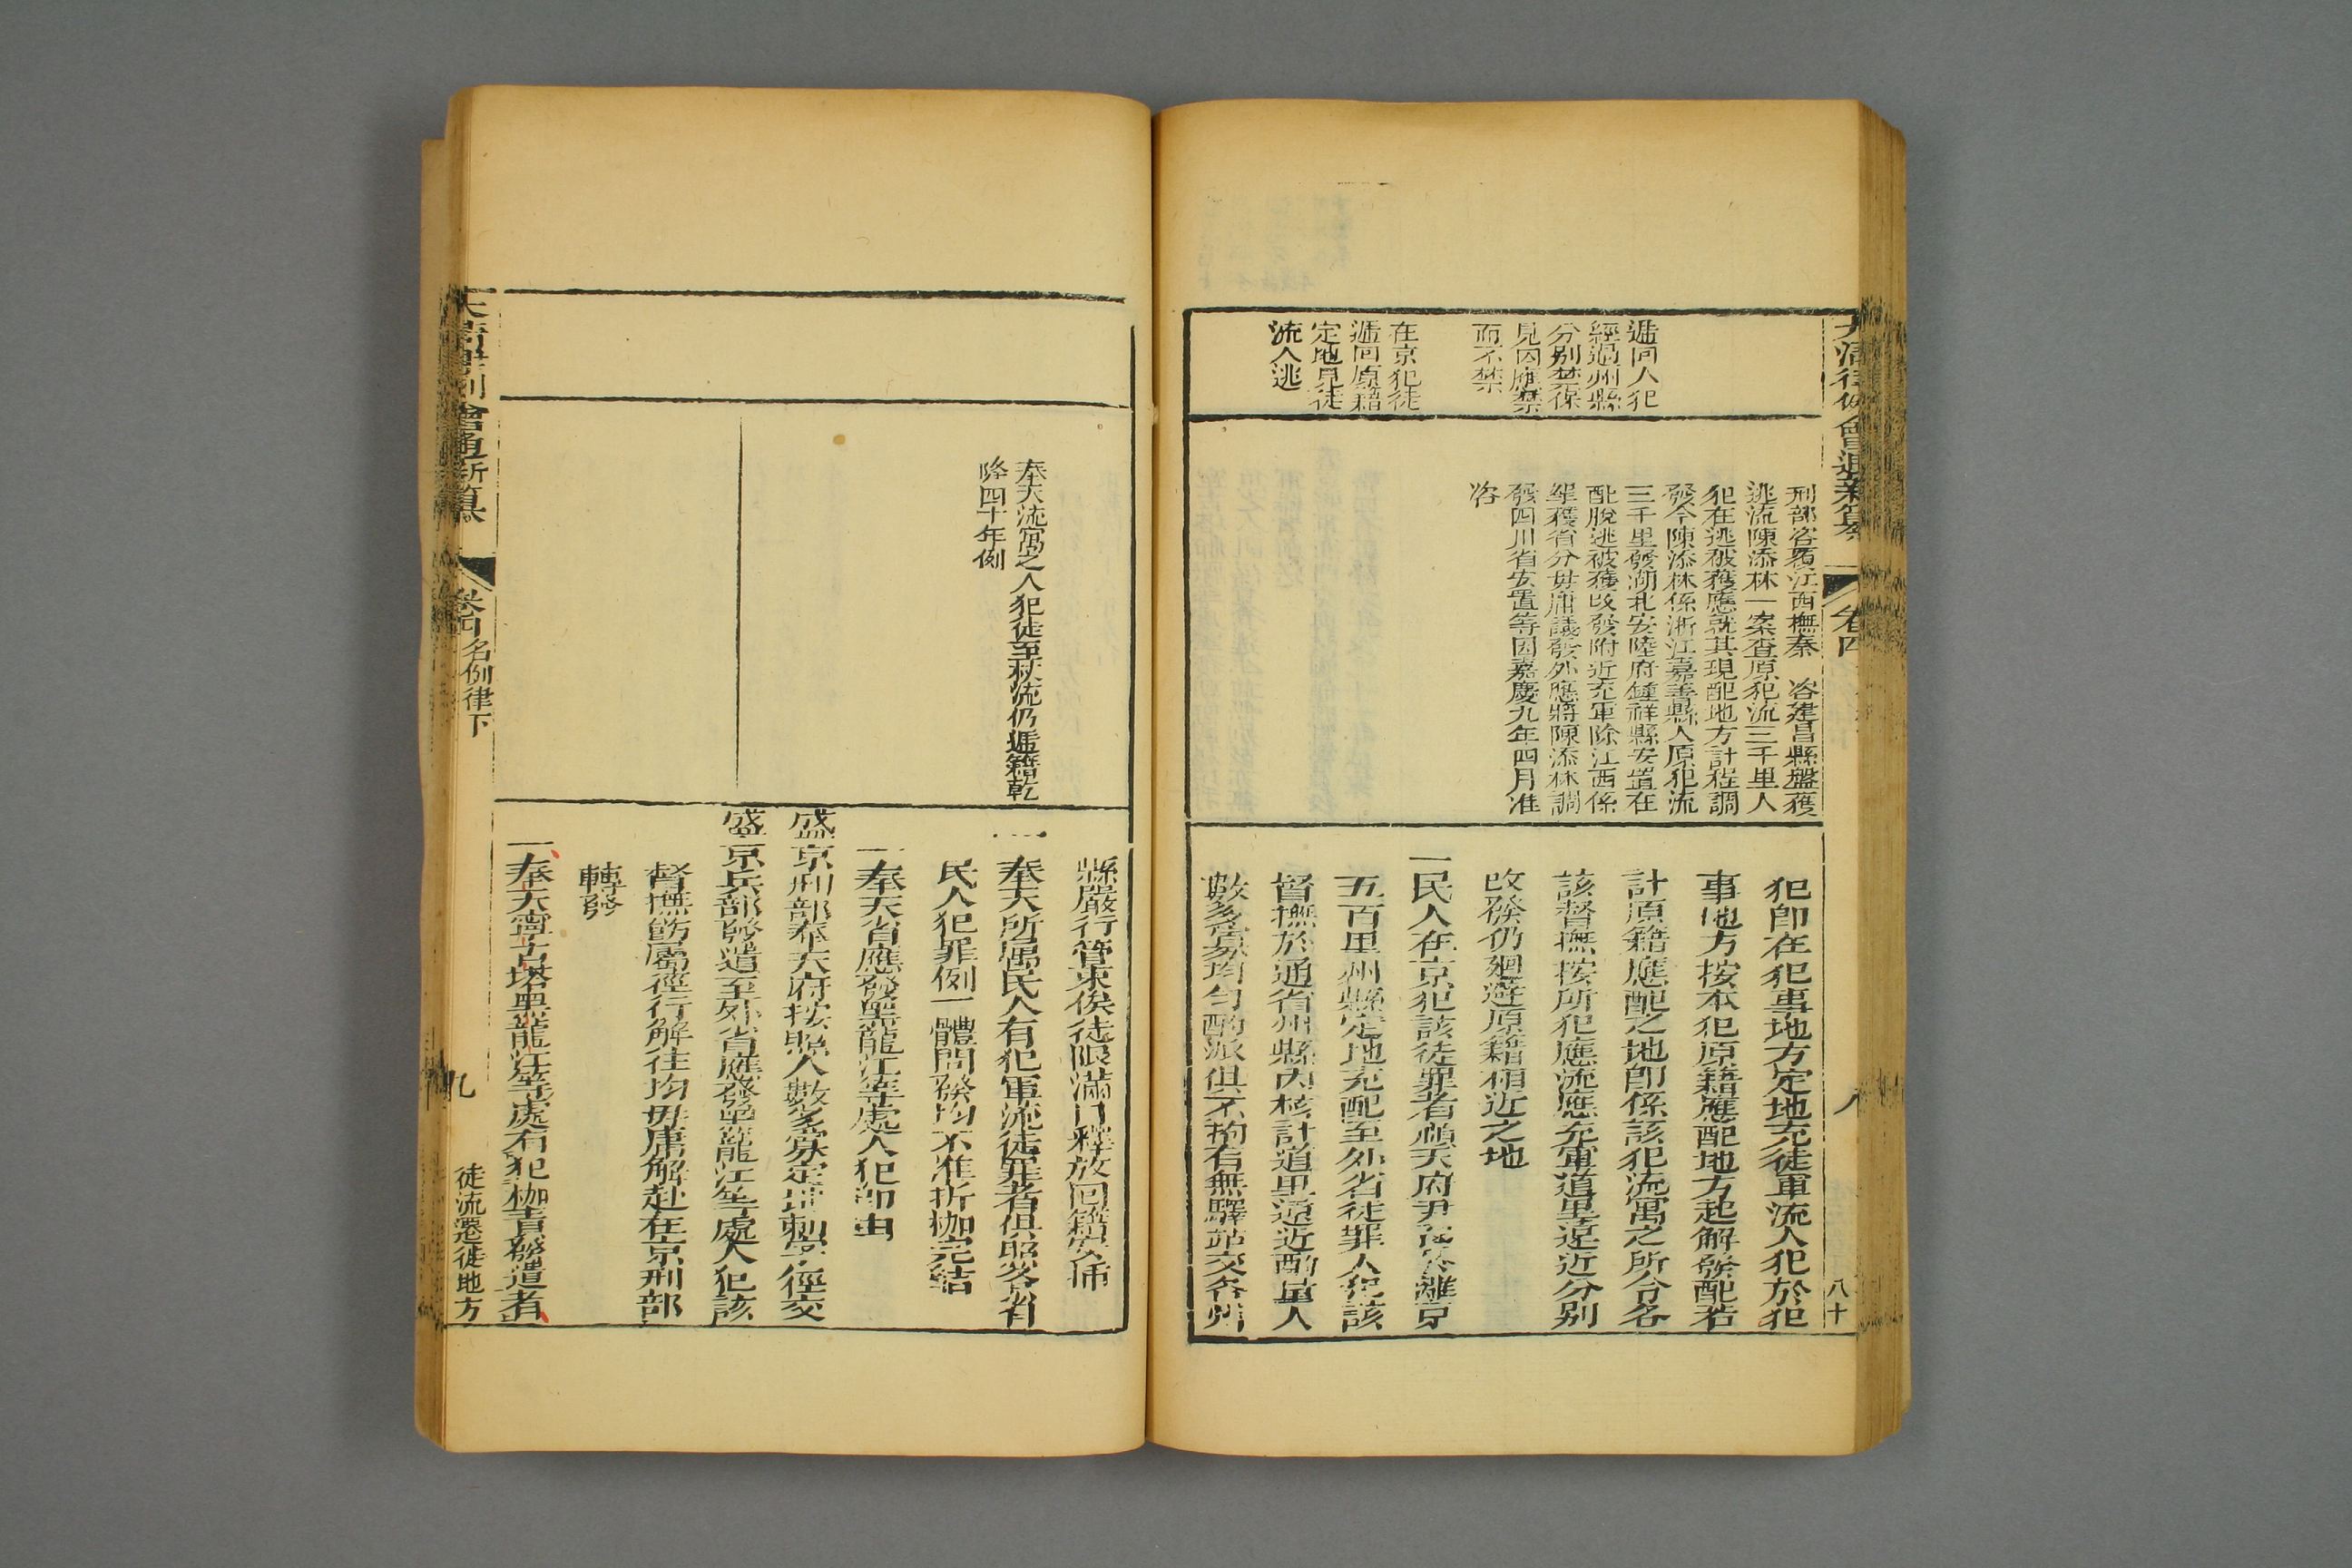 大清律例會通新纂
卷四
八
八十
遞回人犯
經過州縣
分别禁保
見囚應禁
而不禁
在京犯徒
遞回原籍
定地見徒
流人逃
刑部咨覆江西撫秦 咨建昌縣盤獲
逃流陳添林一案查原犯流三千里人
犯在逃被獲應就其現配地方計程調
發今陳添林係浙江嘉善縣人原犯流
三千里發湖北安陸府鍾祥縣安置在
配脫逃被獲改發附近充軍除江西係
拏獲省分毋庸議發外應將陳添林調
發四川省安置等因嘉慶九年四月准
咨
犯卽在犯事地方定地充徒軍流人犯於犯
事地方按本犯原籍應配地方起解發配若
計原籍應配之地卽係該犯流寓之所令各
該督撫按所犯應流應充軍道里遠近分别
改發仍廻避原籍相近之地
一民人在京犯該徒罪者順天府尹離京
五百里州縣定地充配至外省徒罪人犯該
督撫於通省州縣內核計道里遠近酌量人
數多寡均勻酌派俱不拘有無驛站交各州
縣嚴行管束俟徒限滿日釋放回籍安揷
一奉天所屬民人有犯軍流徒罪者俱照各省
民人犯罪例一體問發均不准折枷完結
一奉天省應發黑龍江等處人犯卽由
盛京刑部奉天府按照人數多寡定地刺字徑交
盛京兵部發遣至外省應發黑龍江等處人犯該
督撫飭屬徑行解往均毋庸解赴在京刑部
轉發
一奉天寧古塔黑龍江等處有犯枷責發遣者
奉天流寓之人犯徒至秋流仍遞籍乾
隆四十年例
大清律例會通新纂
卷四
名例律下
九
徒流遷徙地方